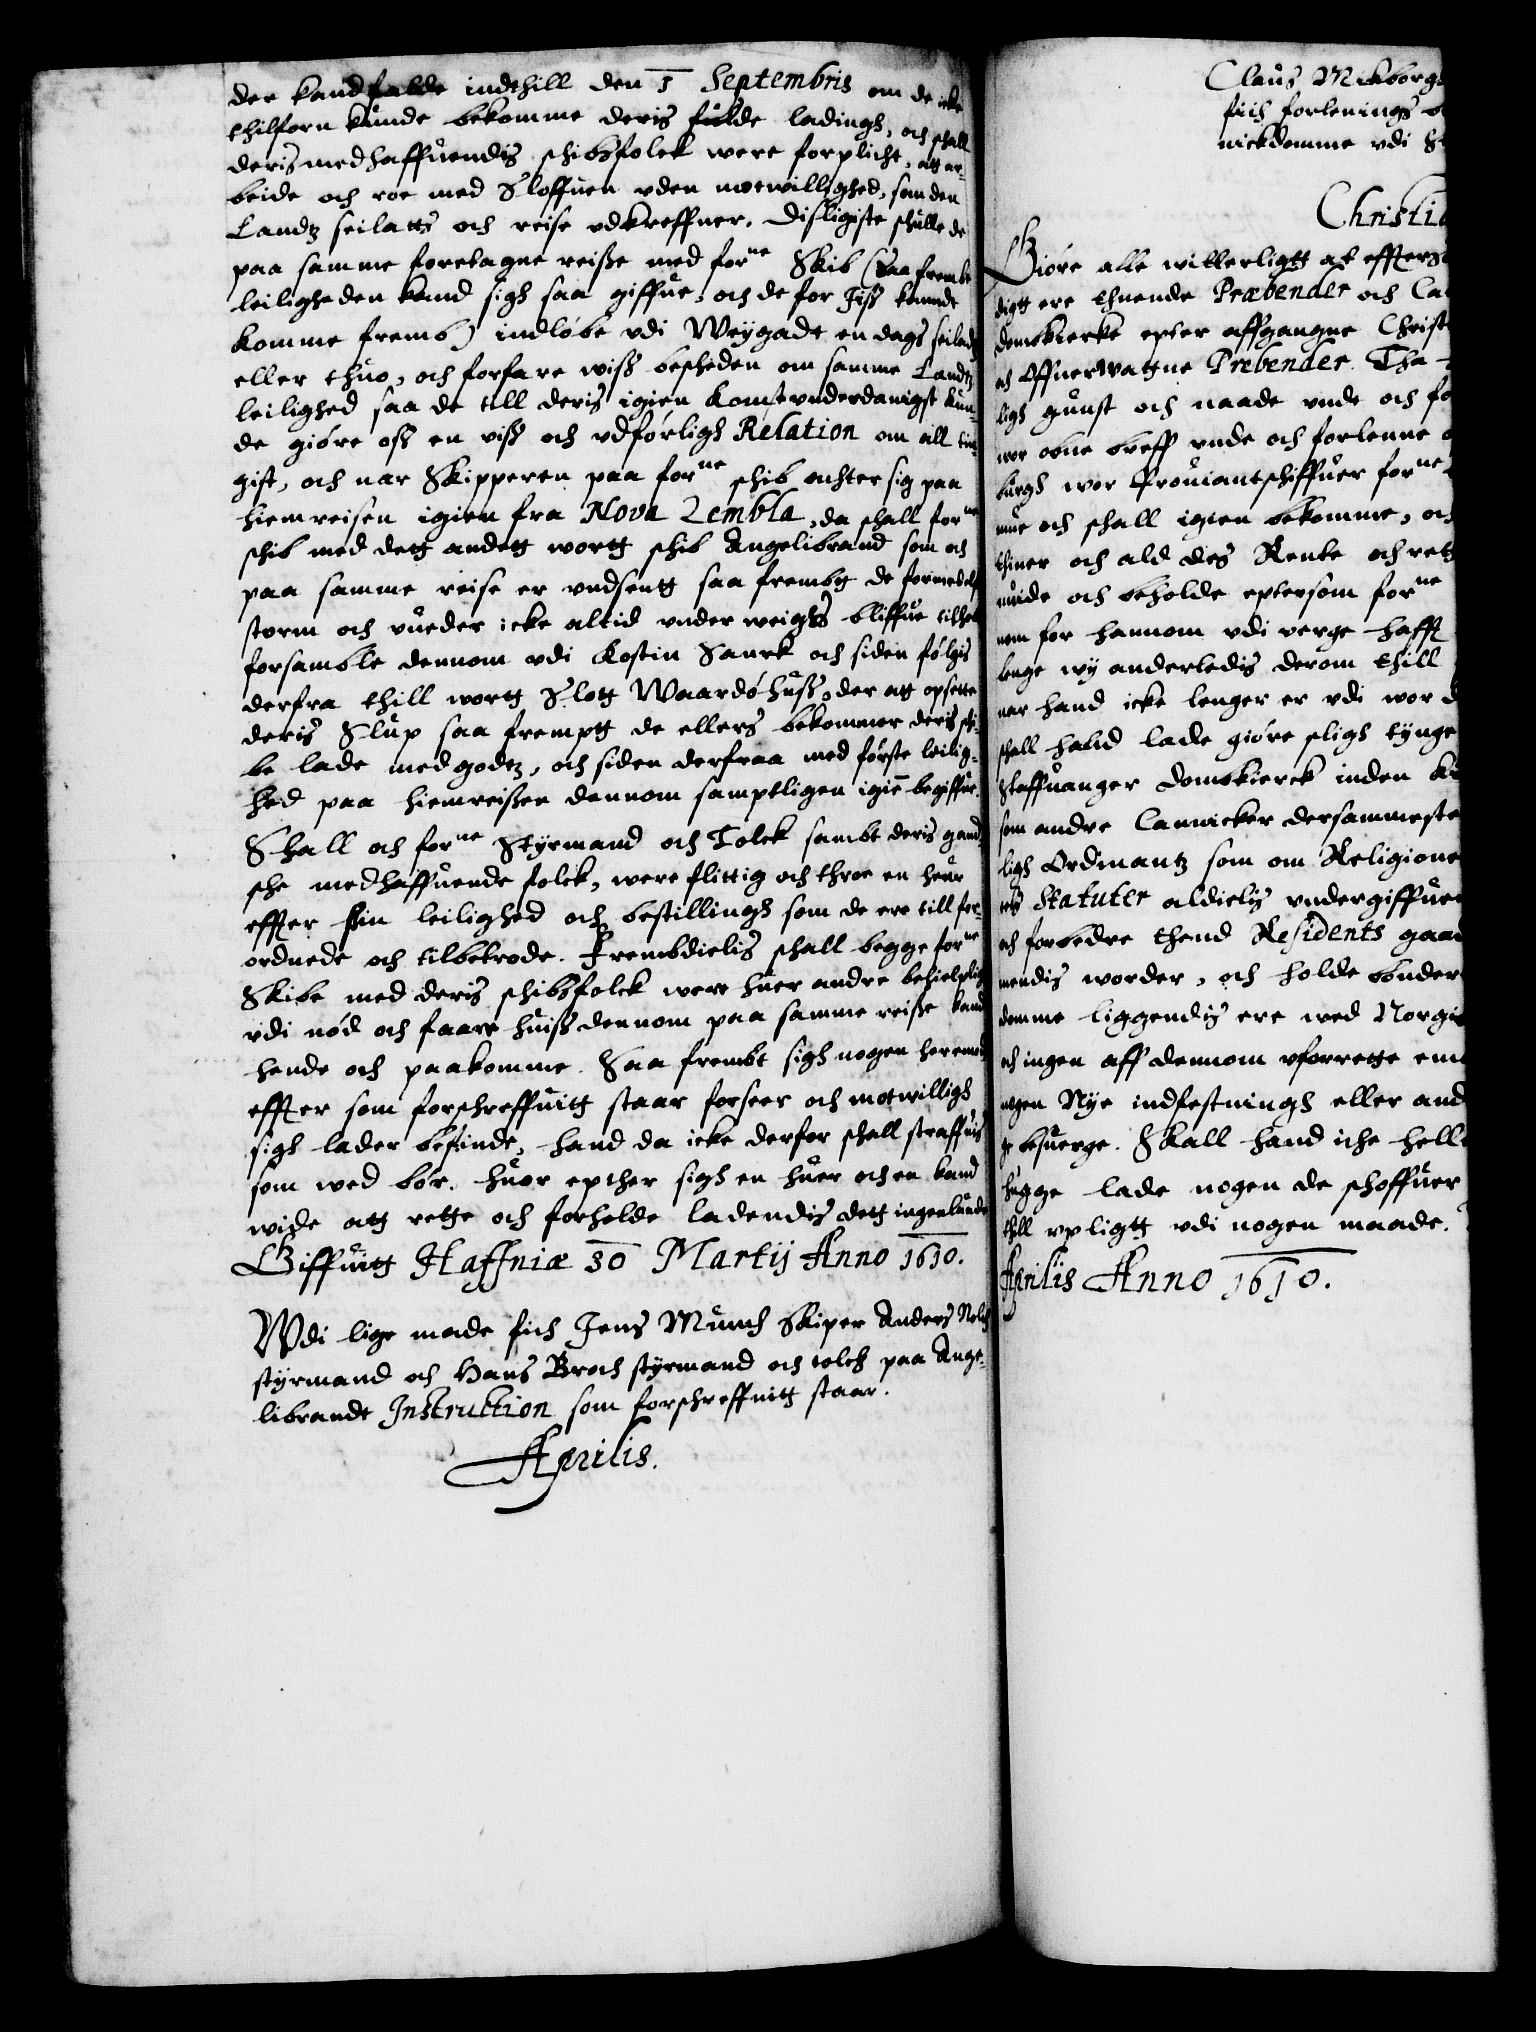 der kand falde indthill den 1 Septembris om de icke
thilforn kunde bekomme deris fulde ladingh, och schall
deris medhaffuendis schibsfolck were forplicht, att ar-
beide och roe med Sloffuen vden motwillighed, som den
Landtz seilatts och reise vdkreffuer. Disligiste schulle de
paa samme foretagne reisse med forne Skib (saa frembt
leiligheden kand sigh saa giffue, och de for Jiss kunde
komme fremb) indløbe vdi Weygadt en dags seilads
eller thuo, och forfare wiss bescheden om samme Landtz
leilighed saa de till deris igien komst vnderdanigst kun-
de giøre oss en viss och vdførligh Relation om all tin-
gist, och nar Skipperen paa forne schib achter sig paa
hiemreisen igien fra Nova Zembla, da schall forne
schib med dett andett wortt schib Angelibrand som och
paa samme reise er vndsentt saa frembt de formedelst
storm och vueder icke altid vnder weighs bliffue tilhobe
forsamble dennom vdi Kostin Sarck och siden følgis
derfra thill wortt Slott Waardøhuss, der att opsette
deris Slup saa fremptt de ellers bekommer deris schi-
be lade med godtz, och siden derfraa med første leilig-
hed paa hiemreissen dennom samptligen igien begiffue.
Schall och forne Styrmand och Tolck sambt deris gand-
sche medhaffuende folck, were flittig och throe en huer
effter sin leilighed och bestillingh som de ere till for-
ordnede och tilbetrode. Frembdielis schall begge forne
Skibe med deris schibsfolck were huer andre behielplig
vdi nød och faare huiss dennom paa samme reisse kand
hende och paakomme. Saa frembt sigh nogen heremod
effter som forschreffuitt staar forseer och motwilligh
sigh lader befinde, hand da icke derfor schall straffuis
som wed bør. huor epther sigh en huer och en kand
wide att rette och forholde ladendis dett ingenlunde
Giffuitt Haffniæ 30 Martij Anno 1610.
Wdi lige made fich Jens Munch Skiper Anders Nolch
styrmand och Hans Broch styrmand och tolch paa Ange-
librandt Instruction som forschreffuitt staar.
Aprilis.
Claus
fich forlenings
nickdomme vdi
Christia
Giøre alle witterligtt at effters
digtt ere thuende Præbender och Ca
domkierke epter affgangne Christ
och Præbender. Tha
ligh gunst och naade vnde och fo
wor obne breff vnde och forlenne
burgh wor Prouiantschriffuer forne
nue och schall igien bekomme, och
thiner och ald des Rente och rett
nuide och beholde eptersom forne
nem for hannom vdi verge hafft
lenge wij anderledis derom thill
nar hand icke lenger er vdi wor
schall hand lade giøre sligh tynge
Staffuanger Domkierck inden
som andre Cannicker dersammeste
ligh Ordinantz som om Religione
tts Statuter aldielis vndergiffue
och forbedre thend Residents gaard
nendis worder, och holde bønder
domme liggendis ere wed Norgis
och ingen aff dennom vforrette em
nogen Nye indfestningh eller and
ge besuerge. Skall hand iche hell
hugge lade nogen de schoffuer
thill vpligtt vdi nogen maade.
Aprilis Anno 1610.